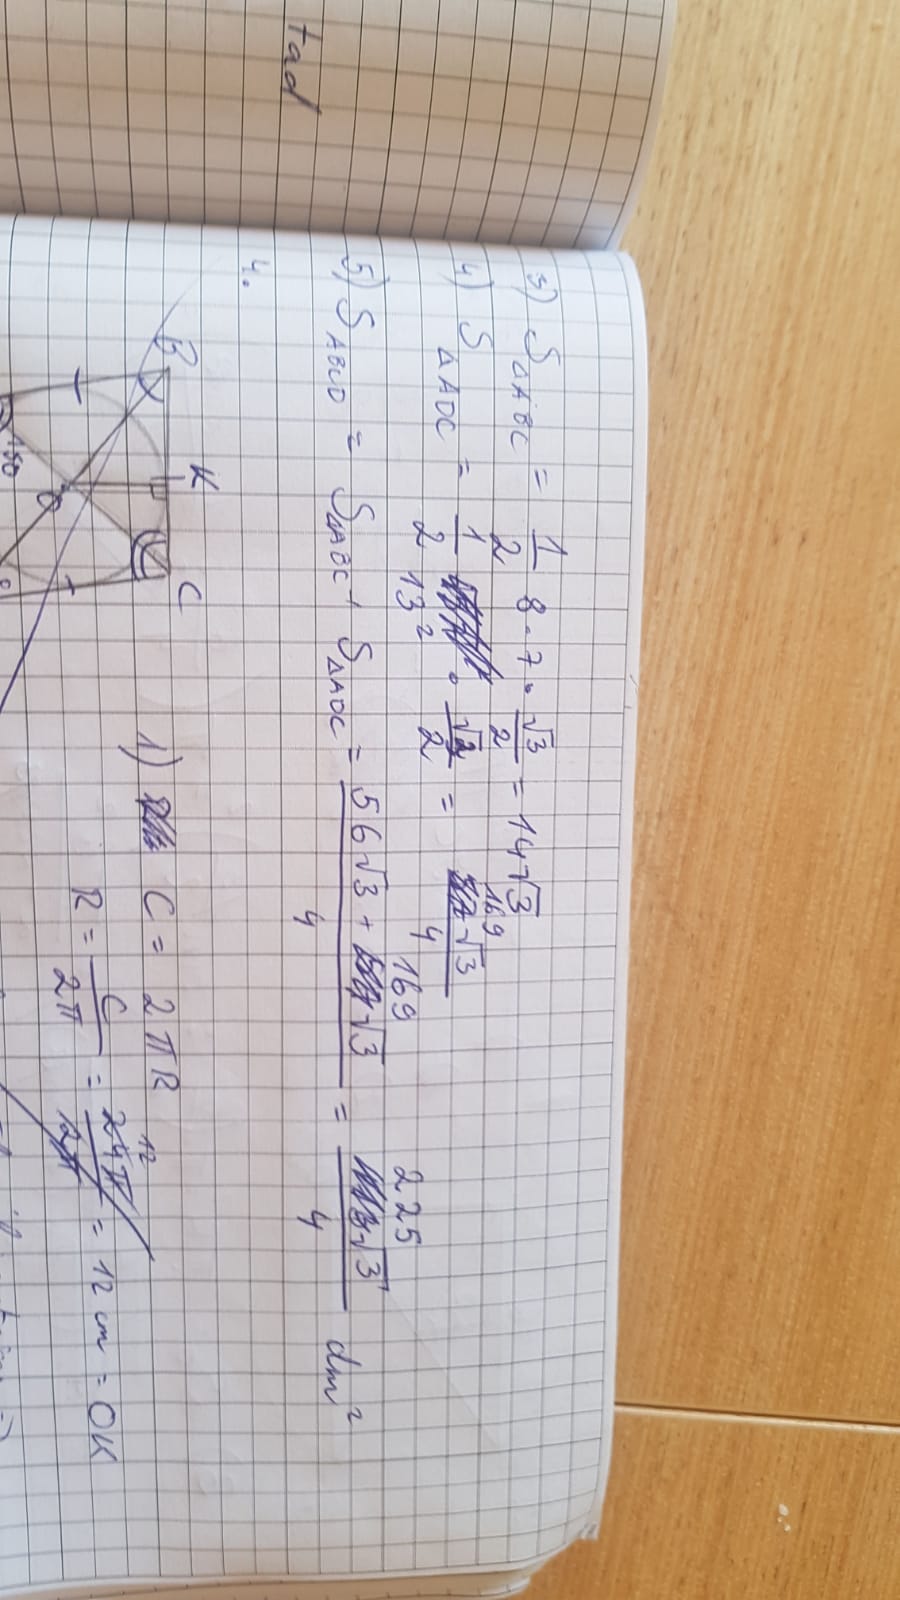 tad
3) S△ABC = 1/2 8·7·√3/2 = 14√3
4) S△ADC = 1/2 13²·√3/2 = 169√3/4
5) SABCD = S△ABC + S△ADC = 56√3+169√3/4 = 225√3/4 dm²
4.
B K C
O
150
1) C = 2πR
R = C/2π = 24π/2π = 12 cm = OK
12